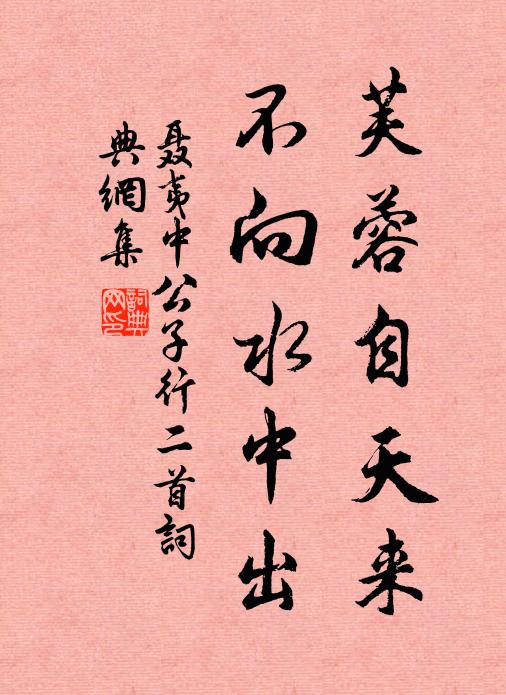 芙蓉自天来
不向水中出
聂夷中公子行二首詞
典網集
詞典网印